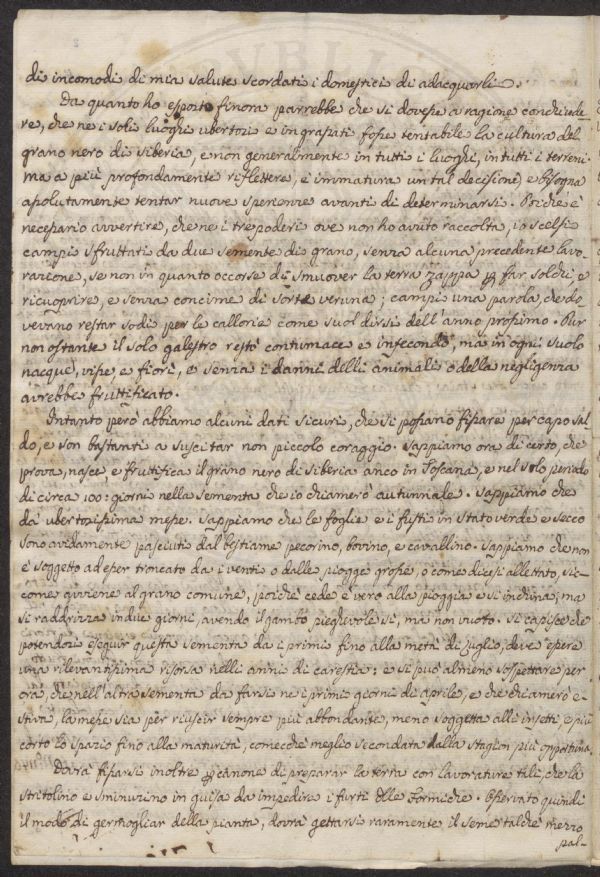 di incomodi di mia salute scordati i domestici di adacquarli.
Da quanto ho esposto finora parrebbe che si dovesse a ragione conchiude-
re, che ne i soli luoghi ubertosi e ingrassati fosse tentabile la cultura del
grano nero di Siberia, e non generalmente in tutti i luoghi, in tutti i terreni.
ma a più profondamente riflettere, è immatura un tal decisione, e bisogna
assolutamente tentar nuove sperienze avanti di determinarsi. Poiche è
necessario avvertire, che ne i tre poderi ove non ho avuto raccolta, io scelsi
campi sfruttati da due semente di grano, senza alcuna precedente lavo-
razione, se non in quanto occorse di smuover la terra zappa far solchi, e
ricuoprire, e senza concime di sorte veruna; campi una parola, che do-
vevano restar sodi per le callorie come suol dirsi dell'anno prossimo. Pur
non ostante il solo galestro restò contumace e infecondo, ma in ogni suolo
nacque, visse, e fiorì, e senza i danni delli animali o della negligenza
avrebbe fruttificato.
Intanto però abbiamo alcuni dati sicuri, che si possano fissare per capo sal-
do, e son bastanti a suscitar non piccolo coraggio. Sappiamo ora di certo, che
prova, nasce, e fruttifica il grano nero di Siberia anco in Toscana, e nel solo periodo
di circa 100: giorni nella sementa che io chiamerò autunnale. Sappiamo che
dà ubertosissima messe. Sappiamo che le foglie e i fusti in stato verde e secco
sono avidamente pasciuti dal bestiame pecorino, bovino, e cavallino. Sappiamo che non
è soggetto ad esser troncato da i venti o dalle piogge grosse, o come dicesi allettato, sic-
come avviene al grano comune, poichè cede è vero alla pioggia e si inchina, ma
si raddrizza in due giorni, avendo il gambo pieghevole sì, ma non vuoto. Si capisce che
potendosi eseguir questa sementa da i primi fino alla metà di luglio, deve essere
una rilevantissima risorsa nelli anni di carestia: e si può almeno sospettare per
ora, che nell'altra sementa da farsi ne i primi giorni di aprile, e che chiamerò e-
stiva, la messe sia per riuscir sempre più abbondante, meno soggetta alli insetti e più
corto lo spazio fino alla maturità, comecchè meglio secondata dalla stagion più opportuna.
Dovrà fissarsi inoltre canone di preparar la terra con lavorature tali, che la
stritolino e sminuzzino in guisa da impedire i furti delle Formiche. Osservato quindi
il modo di germogliar della pianta, dovrà gettarsi raramente il seme talchè mezzo
pal-